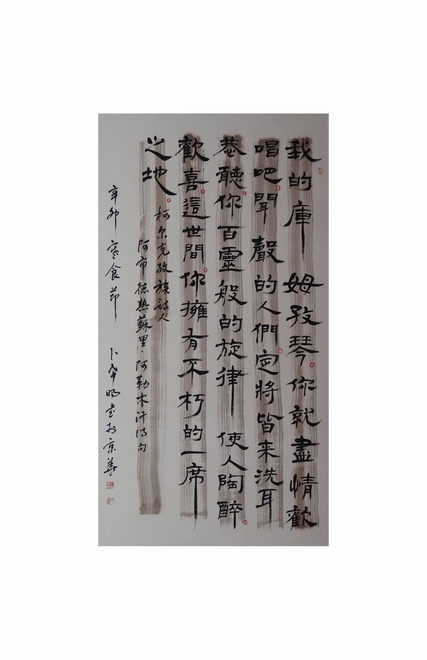 我的庫姆孜琴你就盡情歡
唱吧聞聲的人們定將皆来洗耳
恭聽你百靈般的旋律使人陶醉
歡喜這世間你擁有不朽的一席
之地
柯尔克孜族詩人
阿市德熱蘇里·阿勒木汗詩句
辛卯寒食節